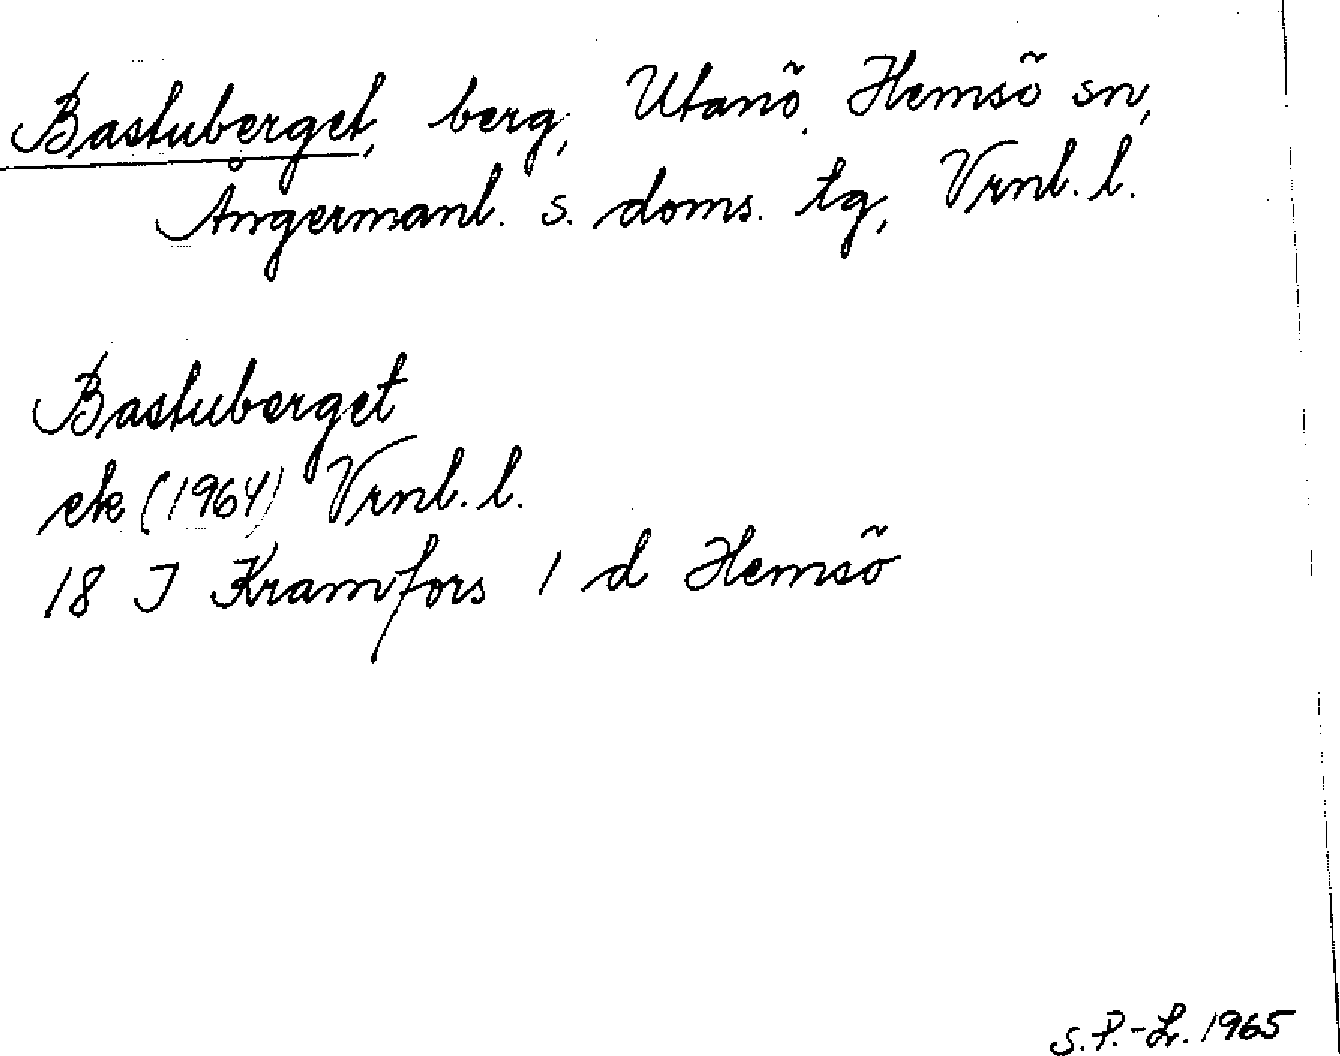 Bastuberget, berg, Utanö, Hemsö sn,
Ångermanl. s. doms. tg, Vrnl. l.
Bastuberget
ek (1964) Vrnl. l.
18 J Kramfors 1 d Hemsö
S.P.-Lr. 1965